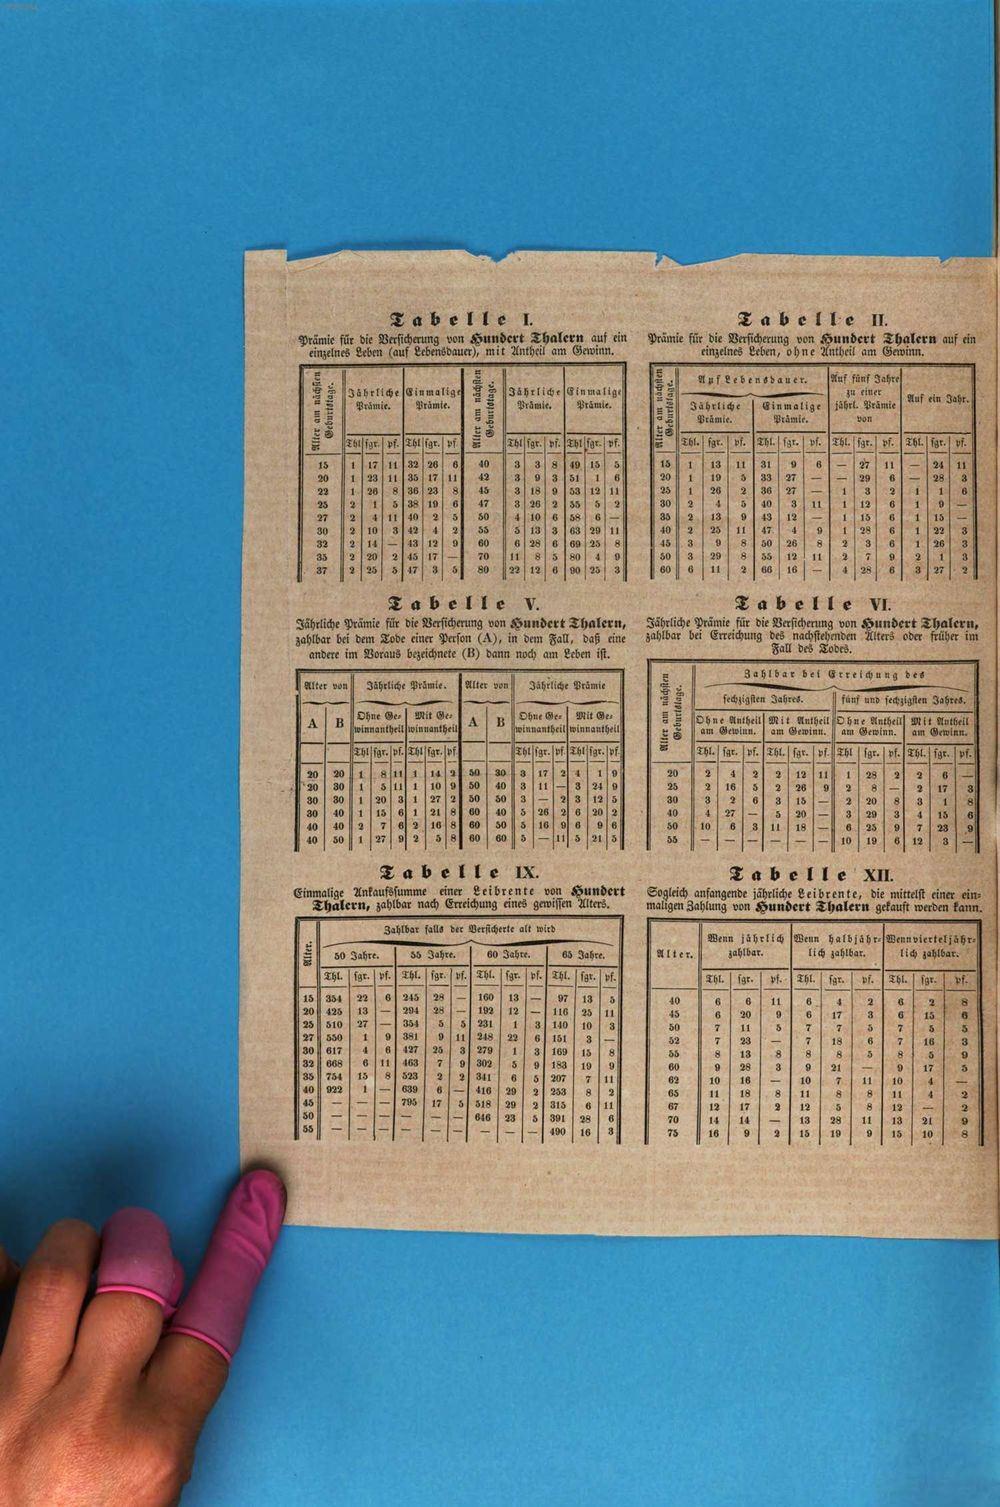 Tabelle I.
Prämie für die Versicherung von Hundert Thalern auf ein
einzelnes Leben (auf Lebensdauer), mit Antheil am Gewinn.
Alter am nächsten Geburtstage. Jährliche Prämie. Einmalige Prämie. Alter am nächsten Geburtstage. Jährliche Prämie. Einmalige Prämie.
Thl sgr. pf. Thl sgr. pf. Thl sgr. pf. Thl sgr. pf.
15 1 17 11 32 26 6 40 3 3 8 49 15 5
20 1 23 11 35 17 11 42 3 9 3 51 1 6
22 1 26 8 36 23 8 45 3 18 9 53 12 11
25 2 1 5 38 19 6 47 3 26 2 55 5 2
27 2 4 11 40 2 5 50 4 10 6 58 6 —
30 2 10 3 42 4 2 55 5 13 3 63 29 11
32 2 14 — 43 12 9 60 6 28 6 69 25 8
35 2 20 2 45 17 — 70 11 8 5 80 4 9
37 2 25 5 47 3 5 80 22 12 6 90 25 3
Tabelle II.
Prämie für die Versicherung von Hundert Thalern auf ein
einzelnes Leben, ohne Antheil am Gewinn.
Alter am nächsten Geburtstage. Auf Lebensdauer. Auf fünf Jahre zu einer jährl. Prämie von Auf ein Jahr.
Jährliche Prämie. Einmalige Prämie.
Thl. sgr. pf. Thl. sgr. pf. Thl. sgr. pf. Thl. sgr. pf.
15 1 13 11 31 9 6 — 27 11 — 24 11
20 1 19 5 33 27 — — 29 6 — 28 3
25 1 26 2 36 27 — 1 3 2 1 1 6
30 2 4 5 40 3 11 1 12 6 1 9 —
35 2 13 9 43 12 — 1 15 6 1 15 —
40 2 25 11 47 4 9 1 28 6 1 22 3
45 3 9 8 50 26 8 2 3 6 1 26 3
50 3 29 8 55 12 11 2 7 9 2 1 3
60 6 11 2 66 16 — 4 28 6 3 27 2
Tabelle V.
Jährliche Prämie für die Versicherung von Hundert Thalern,
zahlbar bei dem Tode einer Person (A), in dem Fall, daß eine
andere im Voraus bezeichnete (B) dann noch am Leben ist.
Alter von Jährliche Prämie. Alter von Jährliche Prämie
A B Ohne Gewinnantheil Mit Gewinnantheil A B Ohne Gewinnantheil Mit Gewinnantheil
Thl sgr. pf. Thl sgr. pf. Thl sgr. pf. Thl sgr. pf.
20 20 1 8 11 1 14 2 50 30 3 17 2 4 1 9
20 30 1 5 11 1 10 9 50 40 3 11 — 3 24 9
30 30 1 20 3 1 27 2 50 50 3 — 2 3 12 5
30 40 1 15 6 1 21 8 60 40 5 26 2 6 20 2
40 40 2 7 6 2 16 8 60 50 5 16 9 6 9 6
40 50 1 27 9 2 5 8 60 60 5 — 11 5 21 5
Tabelle VI.
Jährliche Prämie für die Versicherung von Hundert Thalern,
zahlbar bei Erreichung des nachstehenden Alters oder früher im
Fall des Todes.
Alter am nächsten Geburtstage. Zahlbar bei Erreichung des
sechzigsten Jahres. fünf und sechzigsten Jahres.
Ohne Antheil am Gewinn. Mit Antheil am Gewinn. Ohne Antheil am Gewinn. Mit Antheil am Gewinn.
Thl. sgr. pf. Thl. sgr. pf. Thl. sgr. pf. Thl. sgr. pf.
20 2 4 2 2 12 11 1 28 2 2 6 —
25 2 16 5 2 26 9 2 8 — 2 17 3
30 3 2 6 3 15 — 2 20 8 3 1 8
40 4 27 — 5 20 — 3 29 3 4 15 6
50 10 6 3 11 18 — 6 25 9 7 23 9
55 — — — — — — 10 19 6 12 3 —
Tabelle IX.
Einmalige Ankaufssumme einer Leibrente von Hundert
Thalern, zahlbar nach Erreichung eines gewissen Alters.
Alter. Zahlbar falls der Versicherte alt wird
50 Jahre. 55 Jahre. 60 Jahre. 65 Jahre.
Thl. sgr. pf. Thl. sgr. pf. Thl. sgr. pf. Thl. sgr. pf.
15 354 22 6 245 28 — 160 13 — 97 13 5
20 425 13 — 294 28 — 192 12 — 116 25 11
25 510 27 — 354 5 5 231 1 3 140 10 3
27 550 1 9 381 9 11 248 22 6 151 3 —
30 617 4 6 427 25 3 279 1 3 169 15 8
32 668 6 11 463 7 9 302 5 9 183 19 9
35 754 15 8 523 2 2 341 6 5 207 7 11
40 922 1 — 639 6 — 416 29 2 253 8 2
45 — — — 795 17 5 518 29 2 315 6 11
50 — — — — — — 646 23 5 391 28 6
55 — — — — — — — — — 490 16 3
Tabelle XII.
Sogleich anfangende jährliche Leibrente, die mittelst einer ein-
maligen Zahlung von Hundert Thalern gekauft werden kann.
Alter. Wenn jährlich zahlbar. Wenn halbjährlich zahlbar. Wenn vierteljährlich zahlbar.
Thl. sgr. pf. Thl. sgr. pf. Thl. sgr. pf.
40 6 6 11 6 4 2 6 2 8
45 6 20 9 6 17 3 6 15 6
50 7 11 5 7 7 5 7 5 5
52 7 23 — 7 18 6 7 16 3
55 8 13 8 8 8 5 8 5 9
60 9 28 3 9 21 — 9 17 5
62 10 16 — 10 7 11 10 4 —
65 11 18 8 11 8 8 11 4 2
67 12 17 2 12 5 8 12 — 2
70 14 14 — 13 28 11 13 21 9
75 16 9 2 15 19 9 15 10 8